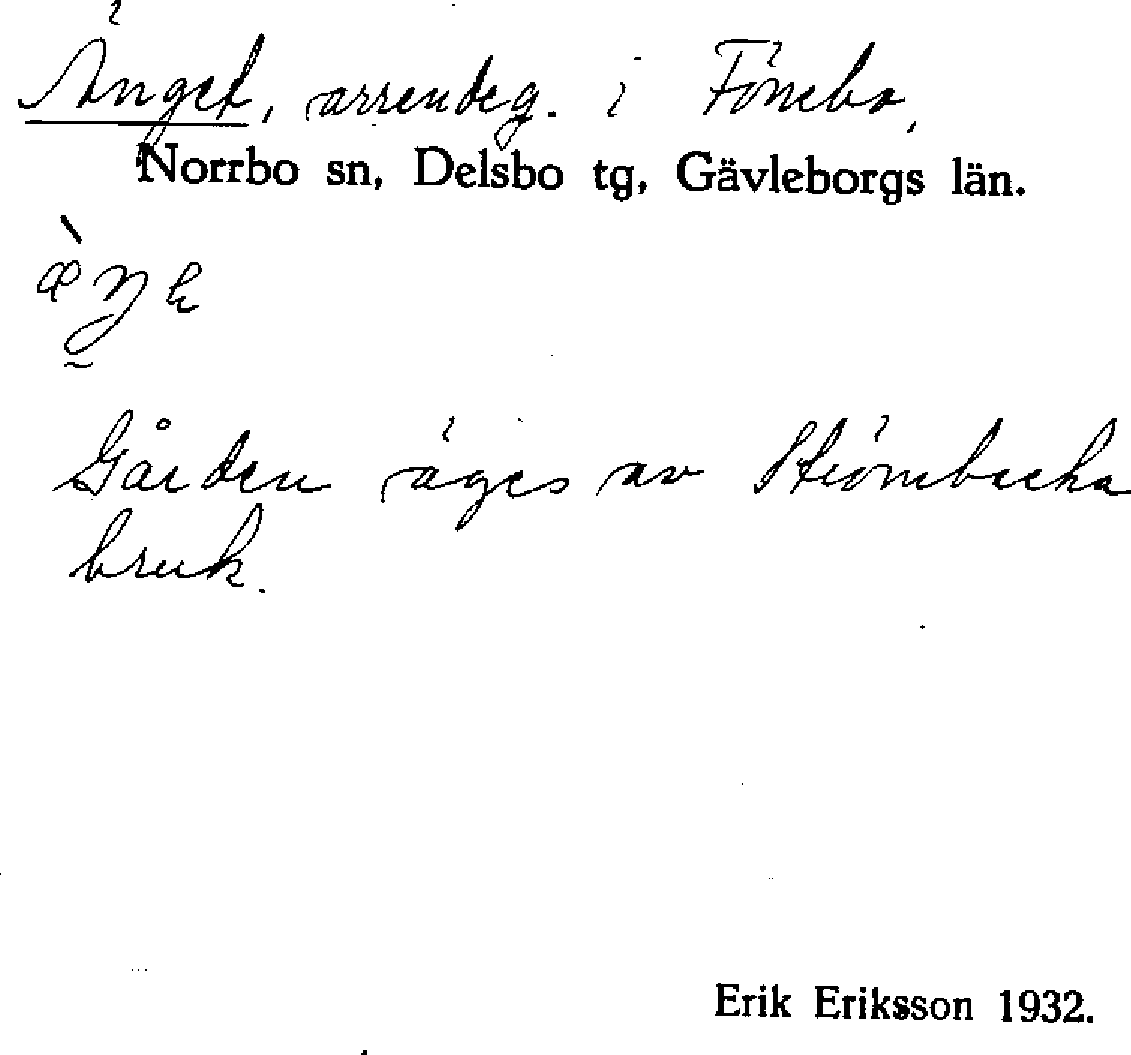 Änget, arrendeg. i Fönebo,
Norrbo sn, Delsbo tg, Gävleborgs län.
Gården äges av Strömbacka
bruk.
Erik Eriksson 1932.